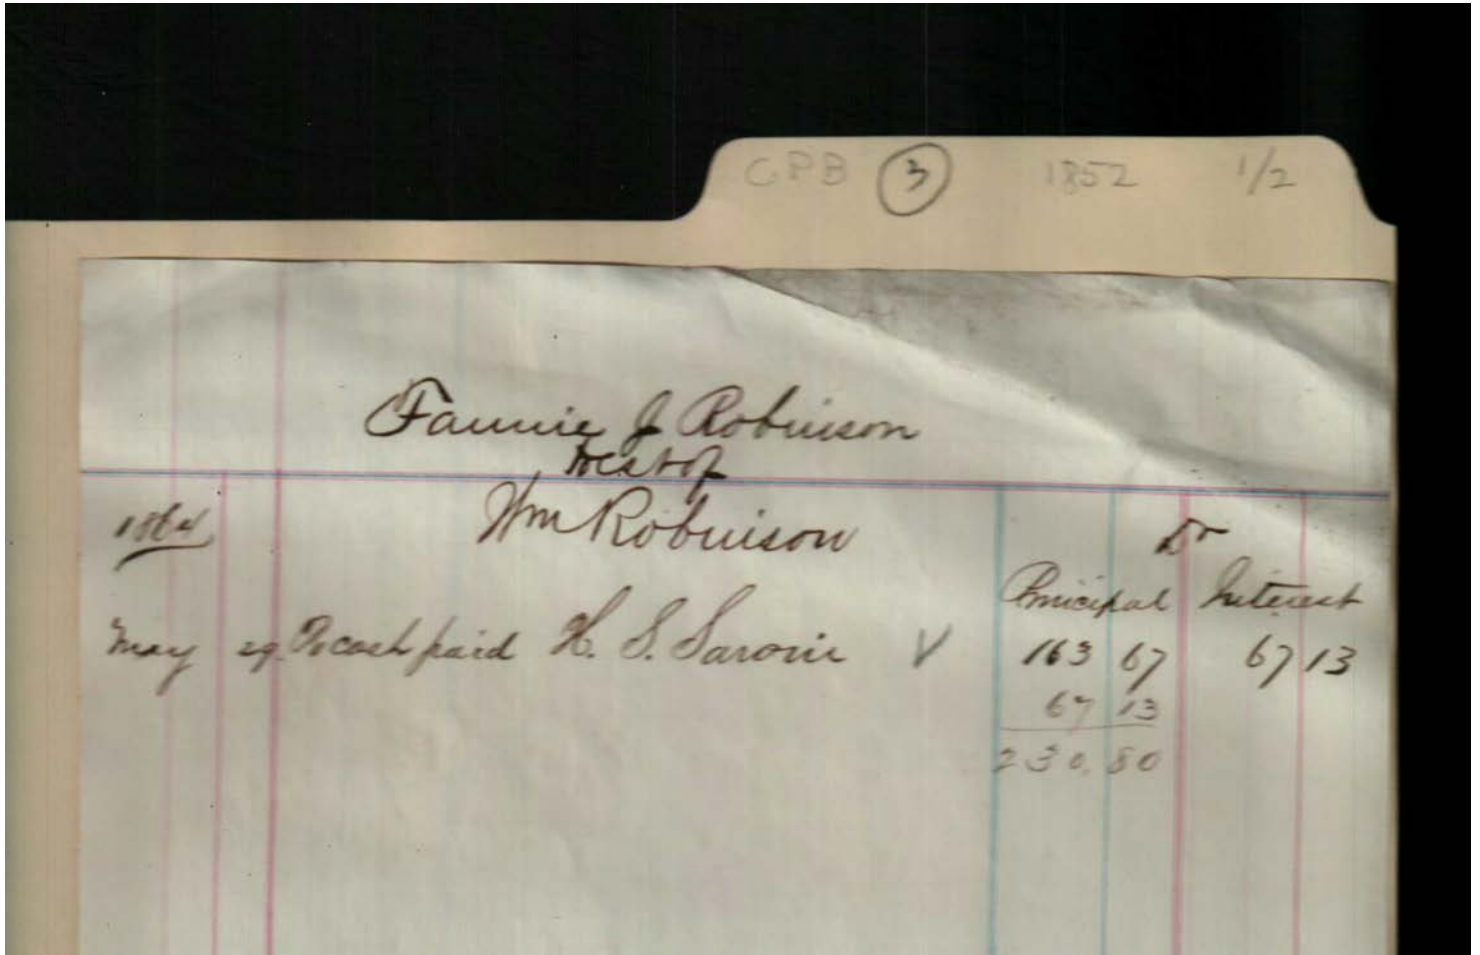 CPB 3 1852 1/2
Fannie J Robinson
Wm Robinson
1864
Dr
Principal Interest
May 29 To cash paid H. S. Saroni V 163 67 67 13
67 13
230.80